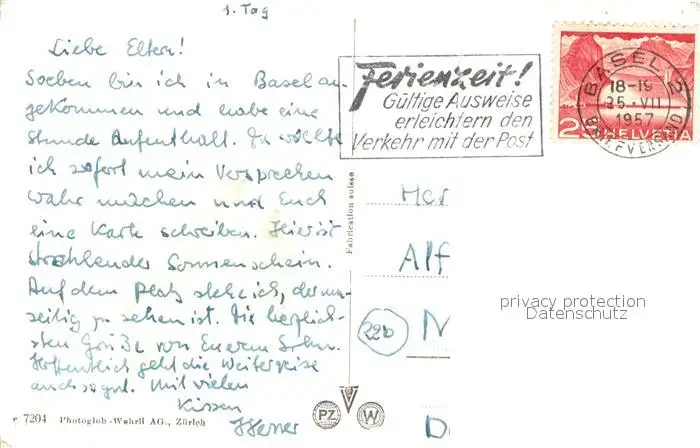 1. Tag
Liebe Eltern!
Soeben bin ich in Basel an-
gekommen und habe eine
Stunde Aufenthalt. Da wollte
ich sofort mein Versprechen
wahr machen und Euch
eine Karte schreiben. Hier ist
strahlender Sonnenschein.
Auf dem Platz stehe ich, der um-
seitig zu sehen ist. Die herzlich-
sten Grüße von Eurem Sohn.
Hoffentlich geht die Weiterreise
auch so gut. Mit vielen
Küssen
Werner
7204 Photoglob-Wehrli AG., Zürich
Fabrication suisse
PZ W
Ferienzeit!
Gültige Ausweise
erleichtern den
Verkehr mit der Post
BASEL 2
18-19
25. VII
1957
BRIEFVERSAND
25 HELVETIA
Her
Alf
(22b) N
D
privacy protection
Datenschutz